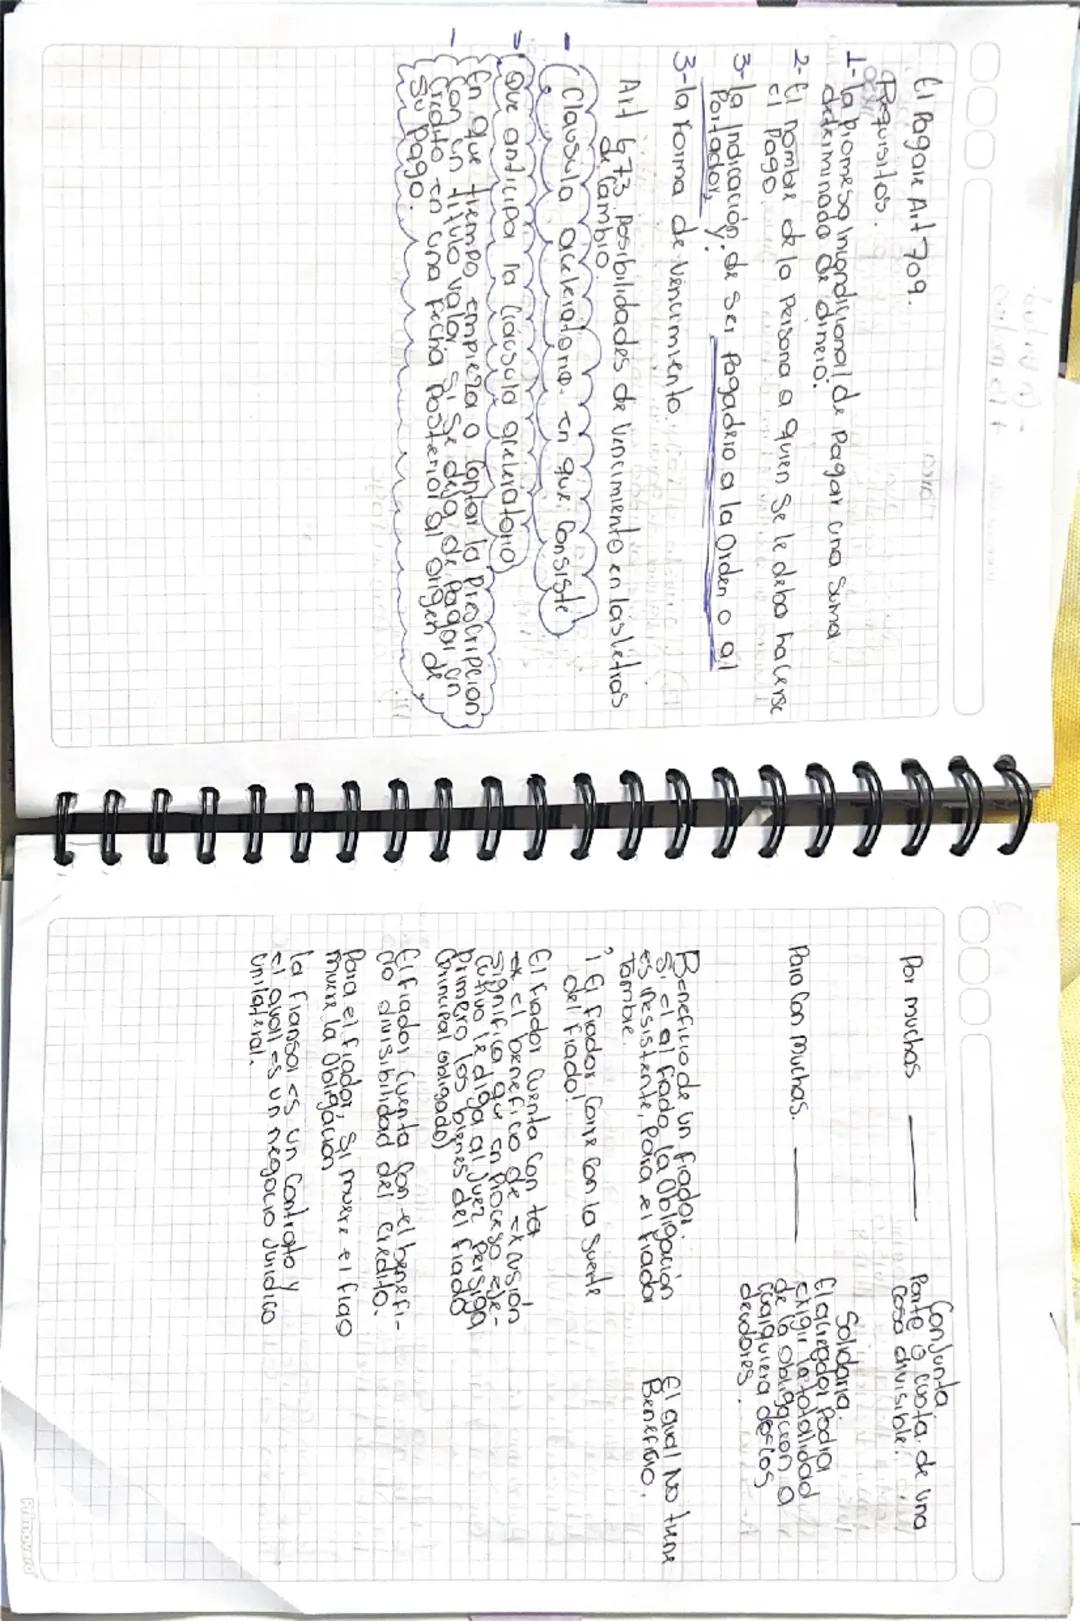 El Pagare Art 709.
Requisitos.
1- la promesa incondicional de Pagar una Suma
determinada de dinero.
2- El nombre de la Persona a quien Se le deba hacerse
el Pago.
3- la Indicación, de Ser Pagadero a la Orden o al
Portador, y.
3- la forma de vencimiento.
Art 673 Posibilidades de Vencimiento en las letras
de cambio.
- Clausula aceleratoria. en que Consiste
- Que anticipa la Cláusula aceleratoria
- En que tiempo empieza a Contar la Prescripcion
Con un titulo valor, Si Se deja de Pagar un
Credito en una fecha Posterior al Origen de
Su Pago.
Por muchas
Conjunta.
Parte o cuota de una
Cosa divisible.
Para Con muchas.
Solidaria.
El acreedor Podra
exigir la totalidad
de la obligacion a
Cualquiera de los
deudores.
Beneficio de un fiador.
Si el al fiado, la Obligación
es inesistente, Para el fiador
Tambie.
El qual No tiene
Beneficio.
¡ El fiador Corre Con la Suerte
del fiado!
El fiador Cuenta Con
el beneficio de
Significa, que en Proceso eje-
cutivo le diga al Juez Persiga
Primero los bienes del fiado
(Principal obligado)
El fiador Cuenta Con el benefi-
do divisibilidad del Credito.
Para el fiador, Si muere el fiao
muere la Obligación
la fiansa es un Contrato y
el qual es un negocio Juridico
Unilateral.
Primavera